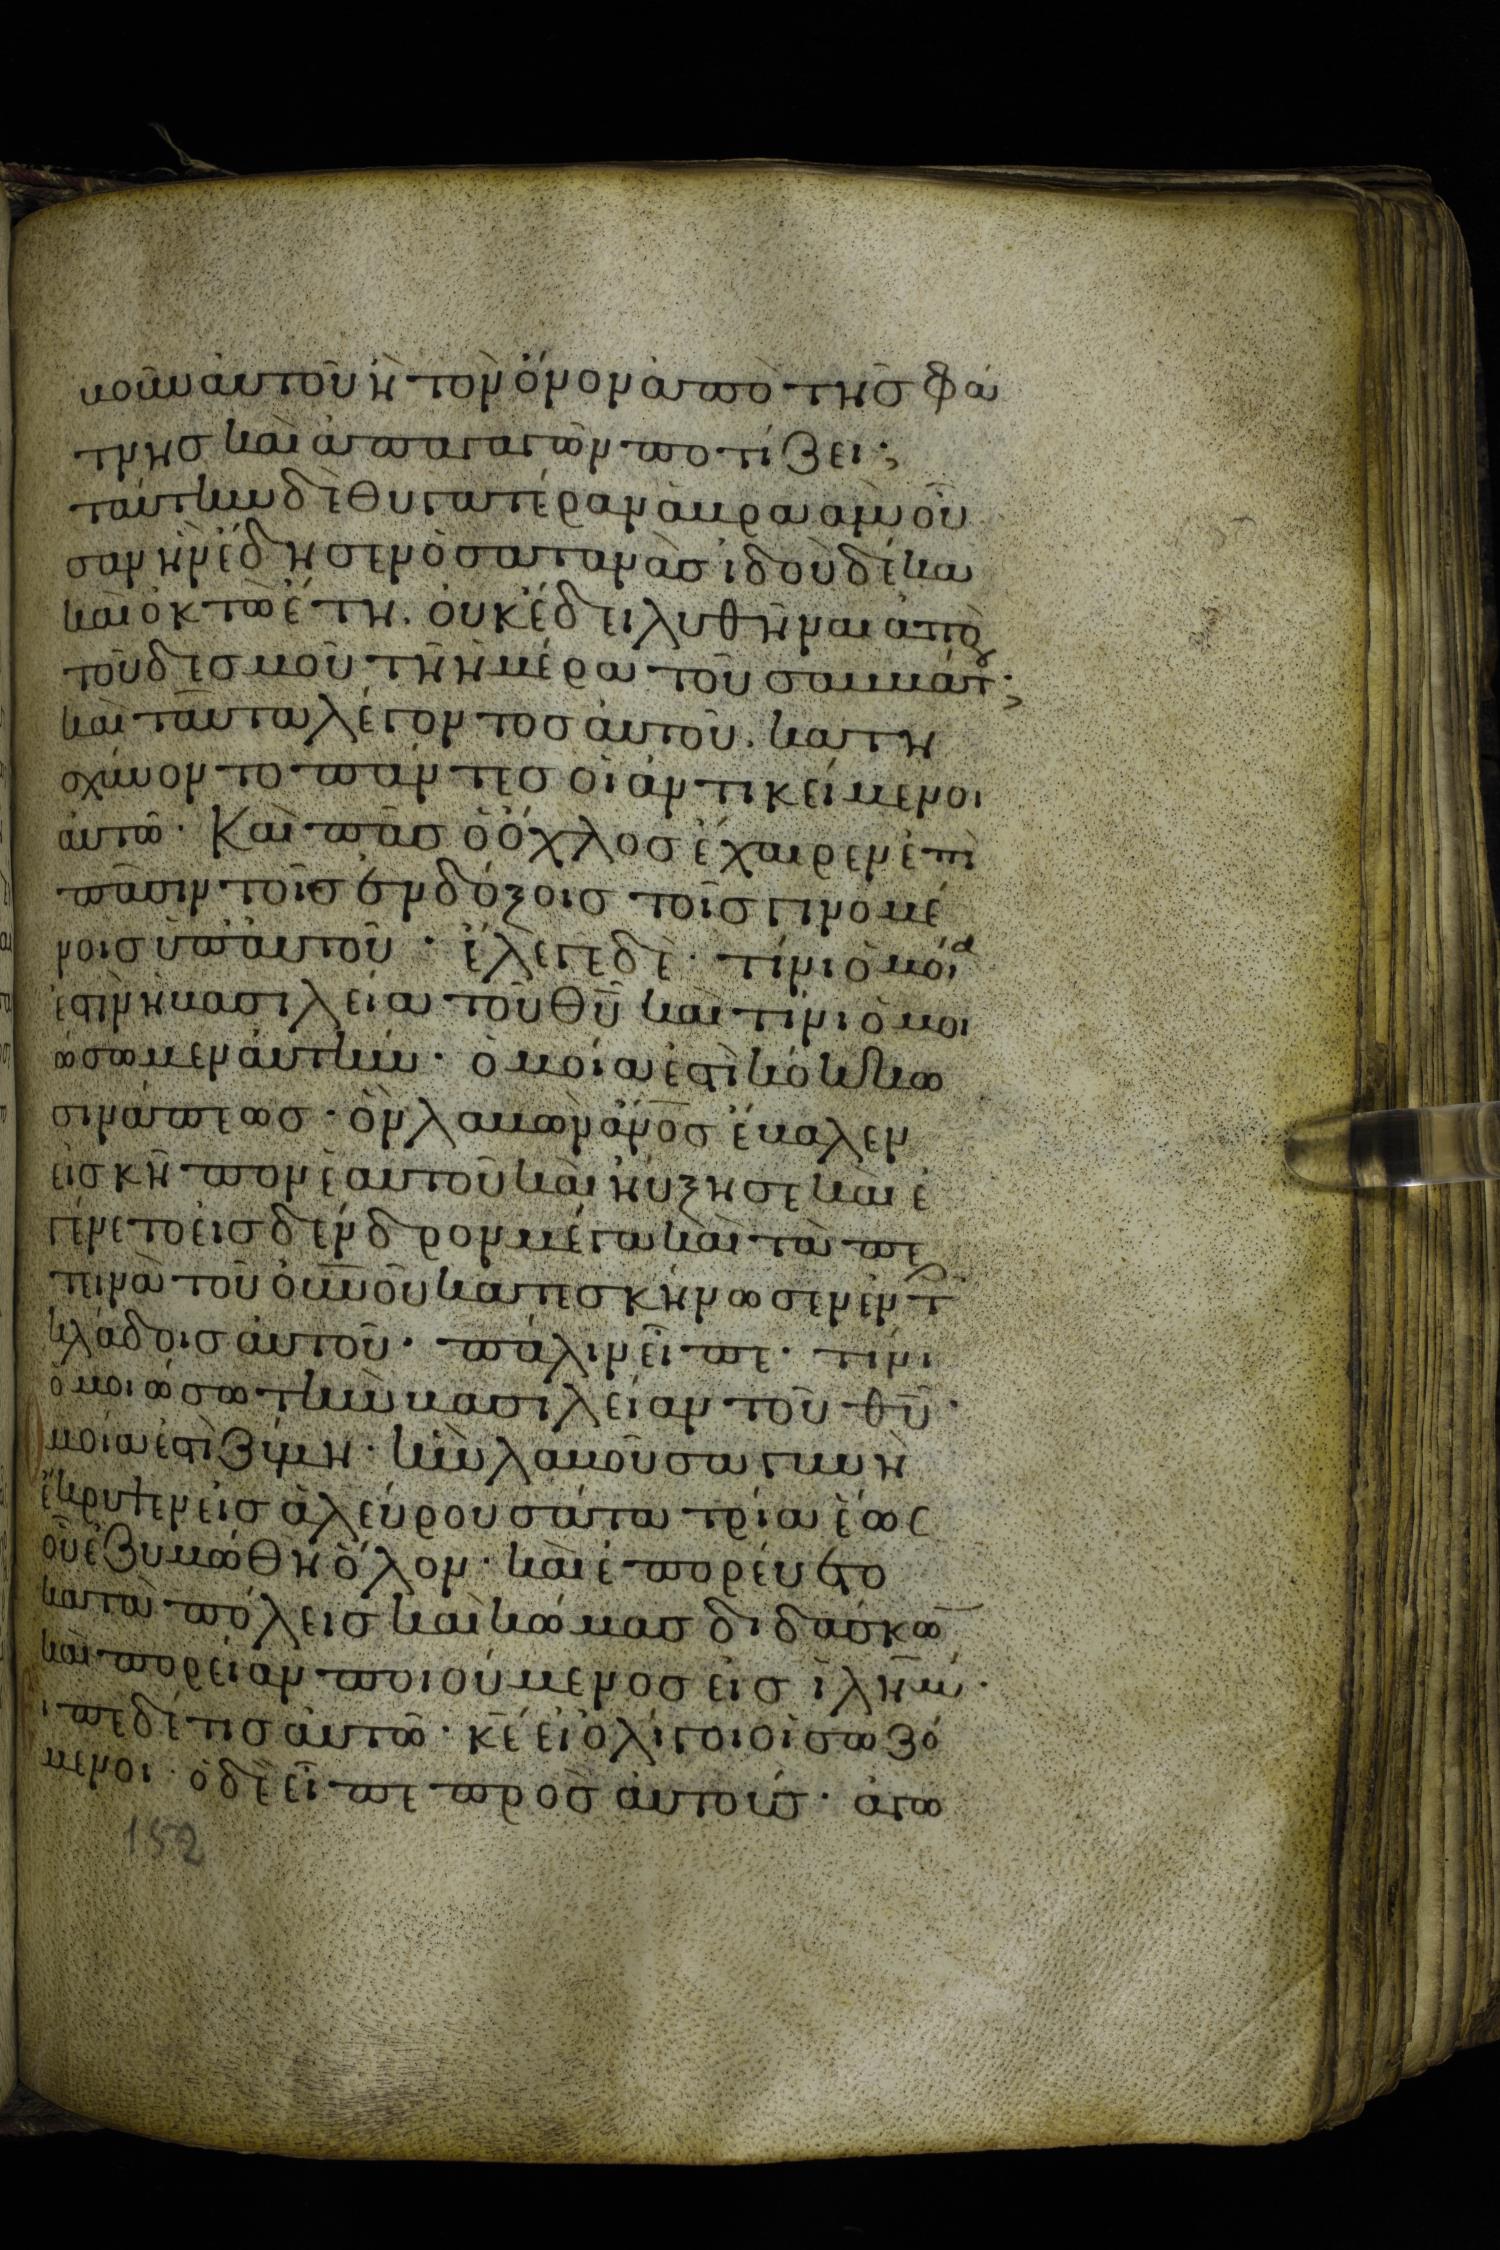 βοῦν αὐτοῦ ἢ τὸν ὄνον ἀπὸ τῆς φά
τνης καὶ ἀπαγαγὼν ποτίζει;
ταύτην δὲ θυγατέρα ἀβραὰμ οὖ
σαν ἣν ἔδησεν ὁ σατανᾶς ἰδοὺ δέκα
καὶ ὀκτὼ ἔτη. οὐκ ἔδει λυθῆναι ἀπὸ
τοῦ δεσμοῦ τῆ ἡμέρα τοῦ σαββάτ;
καὶ ταῦτα λέγοντος αὐτοῦ. κατη
σχύνοντο πάντες οἱ ἀντικείμενοι
αὐτῶ. Καὶ πᾶς ὁ ὄχλος ἔχαιρεν ἐπὶ
πᾶσιν τοῖς ἐνδόξοις τοῖς γινομέ
νοις ὑπ αὐτοῦ. ἔλεγε δὲ. τίνι ὁμοία
ἐστὶν ἡ βασιλεία τοῦ θῦ καὶ τίνι ὁμοι
ώσω μεν αὐτήν. ὁμοία ἐστὶ κόκκω
σινάπεως. ὃν λαβὼν ἄνος ἔβαλεν
εἰς κῆπον ἑαυτοῦ καὶ ηὔξησε καὶ ἐ
γένετο εἰς δένδρον μέγα καὶ τὰ πε
τεινὰ τοῦ οὐνοῦ κατεσκήνωσεν ἐν τ
κλάδοις αὐτοῦ. πάλιν εἶπε. τίνι
ὁμοιώσω τὴν βασιλείαν τοῦ θῦ.
ὁμοία ἐστὶ ζύμη. ἣν λαβοῦσα γυνὴ
ἔκρυψεν εἰς ἀλεύρου σάτα τρία ἕως
οὗ ἐζυμώθη ὅλον. καὶ ἐπορεύετο
κατὰ πόλεις καὶ κώμας διδάσκω
καὶ πορείαν ποιούμενος εἰς ἱλήμ.
εἶπε δέ τις αὐτῶ. κε εἰ ὀλίγοι οἱ σωζό
μενοι. ὁ δὲ εἶπε πρὸς αὐτούς. ἀγω
152